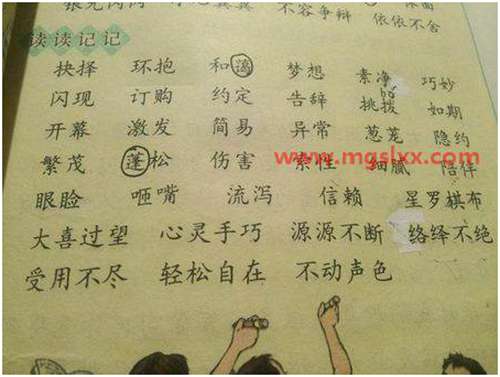 不容争辩 依依不舍
读读记记
抉择 环抱 和蔼 梦想 素净 巧妙
bō
闪现 订购 约定 告辞 挑拨 如期
开幕 激发 简易 异常 葱茏 隐约
www.mgslxx.com
繁茂 蓬松 伤害 索性 细腻 陪伴
眼睑 咂嘴 流泻 信赖 星罗棋布
大喜过望 心灵手巧 源源不断 络绎不绝
受用不尽 轻松自在 不动声色